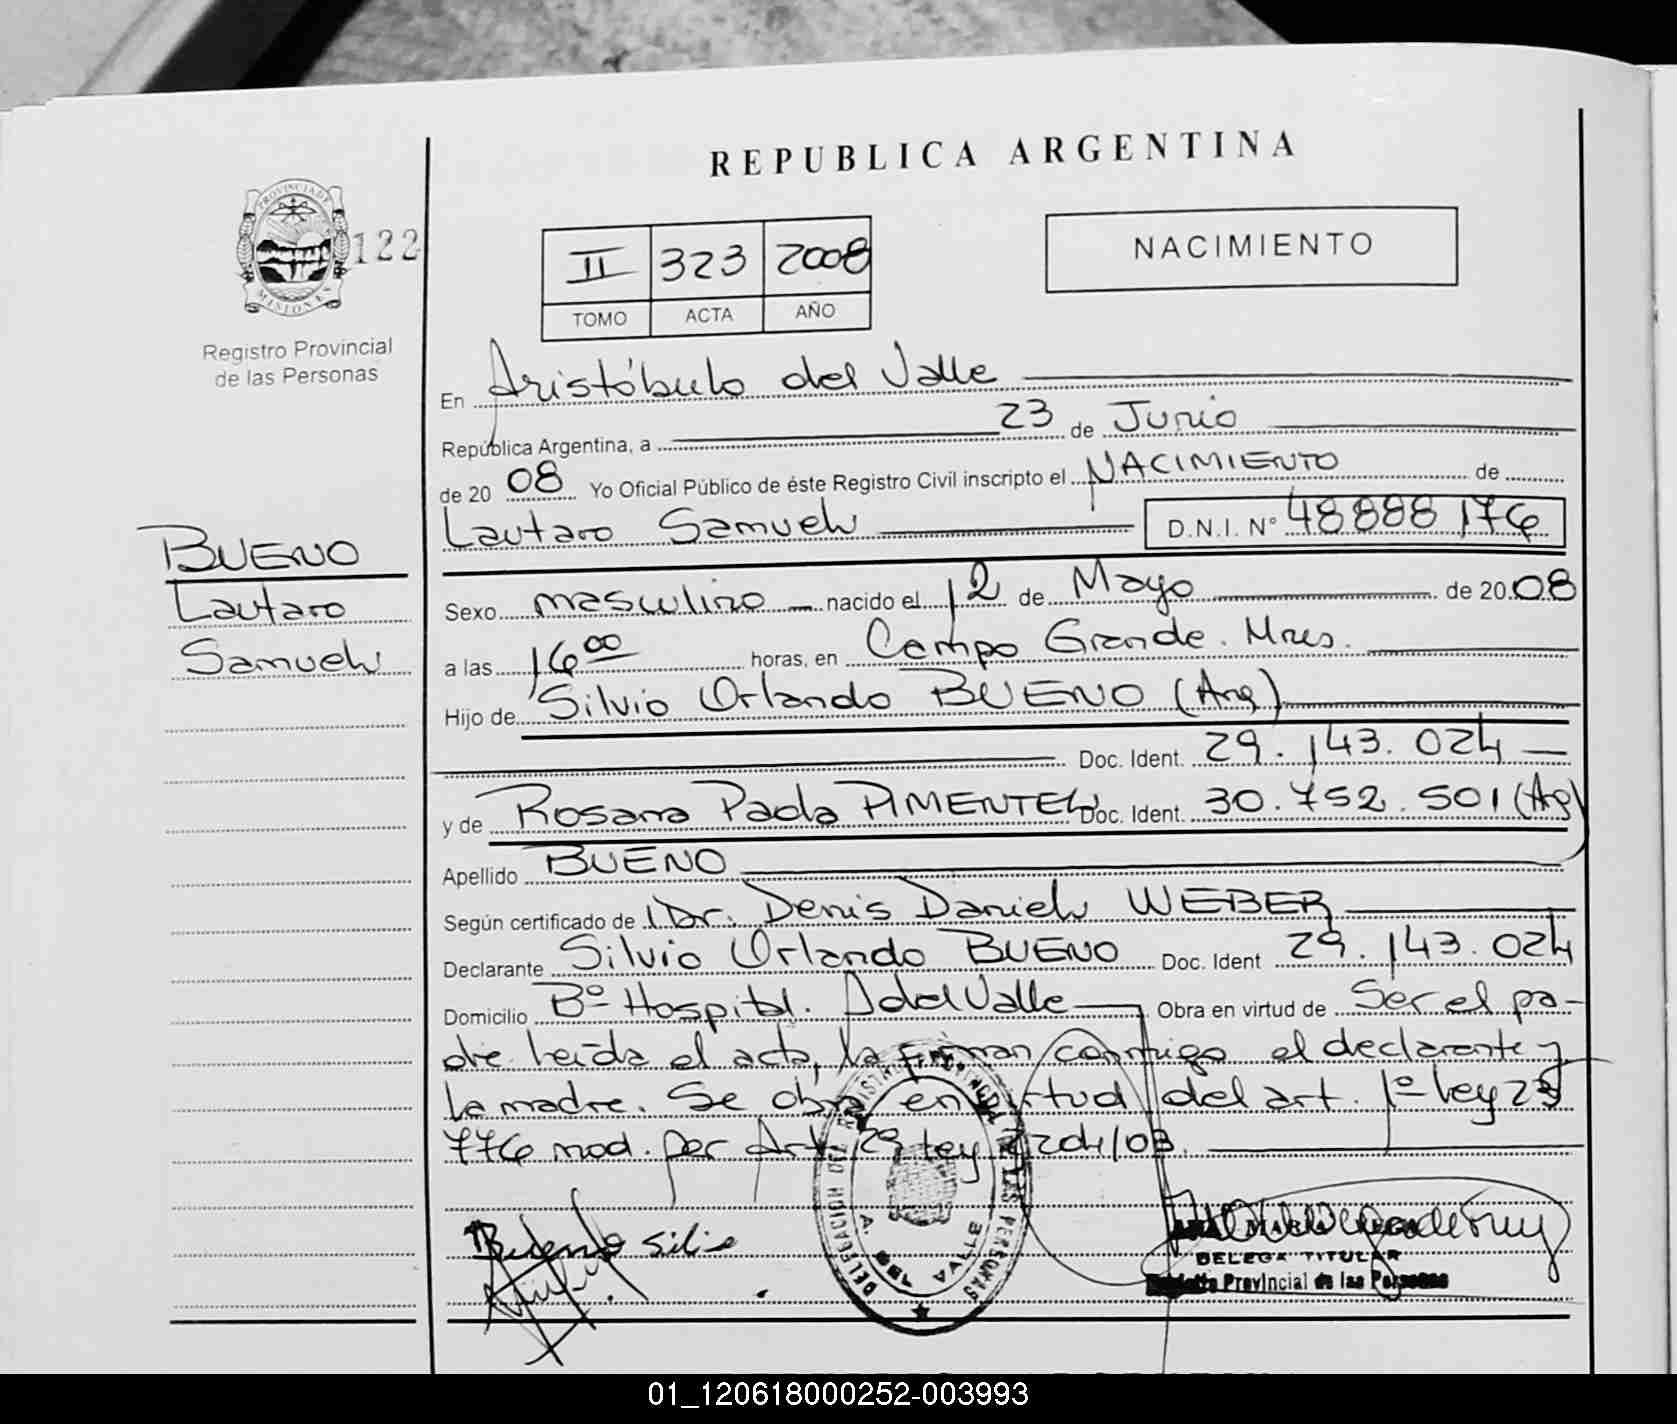 REPUBLICA ARGENTINA
PROVINCIA DE
MISIONES
122
Registro Provincial
de las Personas
II 323 2008
TOMO ACTA AÑO
NACIMIENTO
En Aristóbulo del Valle
República Argentina, a 23 de Junio
de 20 08 Yo Oficial Público de éste Registro Civil inscripto el NACIMIENTO de
Lautaro Samuel D.N.I. N° 48888176
BUENO
Lautaro
Samuel
Sexo masculino nacido el 12 de Mayo de 20 08
a las 16 00 horas, en Campo Grande. Mnes.
Hijo de Silvio Orlando BUENO (Arg)
Doc. Ident. 29.143.024
y de Rosana Paola PIMENTEL Doc. Ident. 30.752.501 (Ag)
Apellido BUENO
Según certificado de Dr. Denis Daniel WEBER
Declarante Silvio Orlando BUENO Doc. Ident 29.143.024
Domicilio Bº Hospital. A del Valle Obra en virtud de Ser el pa-
dre. leída el acta, la firman conmigo el declarante y
la madre. Se obra en virtud del art. 1º ley 23
776 mod. per Art. 29 ley 22041/03.
Bueno Silvio
DELEGACION DEL REGISTRO PROVINCIAL DE LAS PERSONAS
A. DEL VALLE
DELEGA TITULAR
Provincial de las Personas
01_120618000252-003993